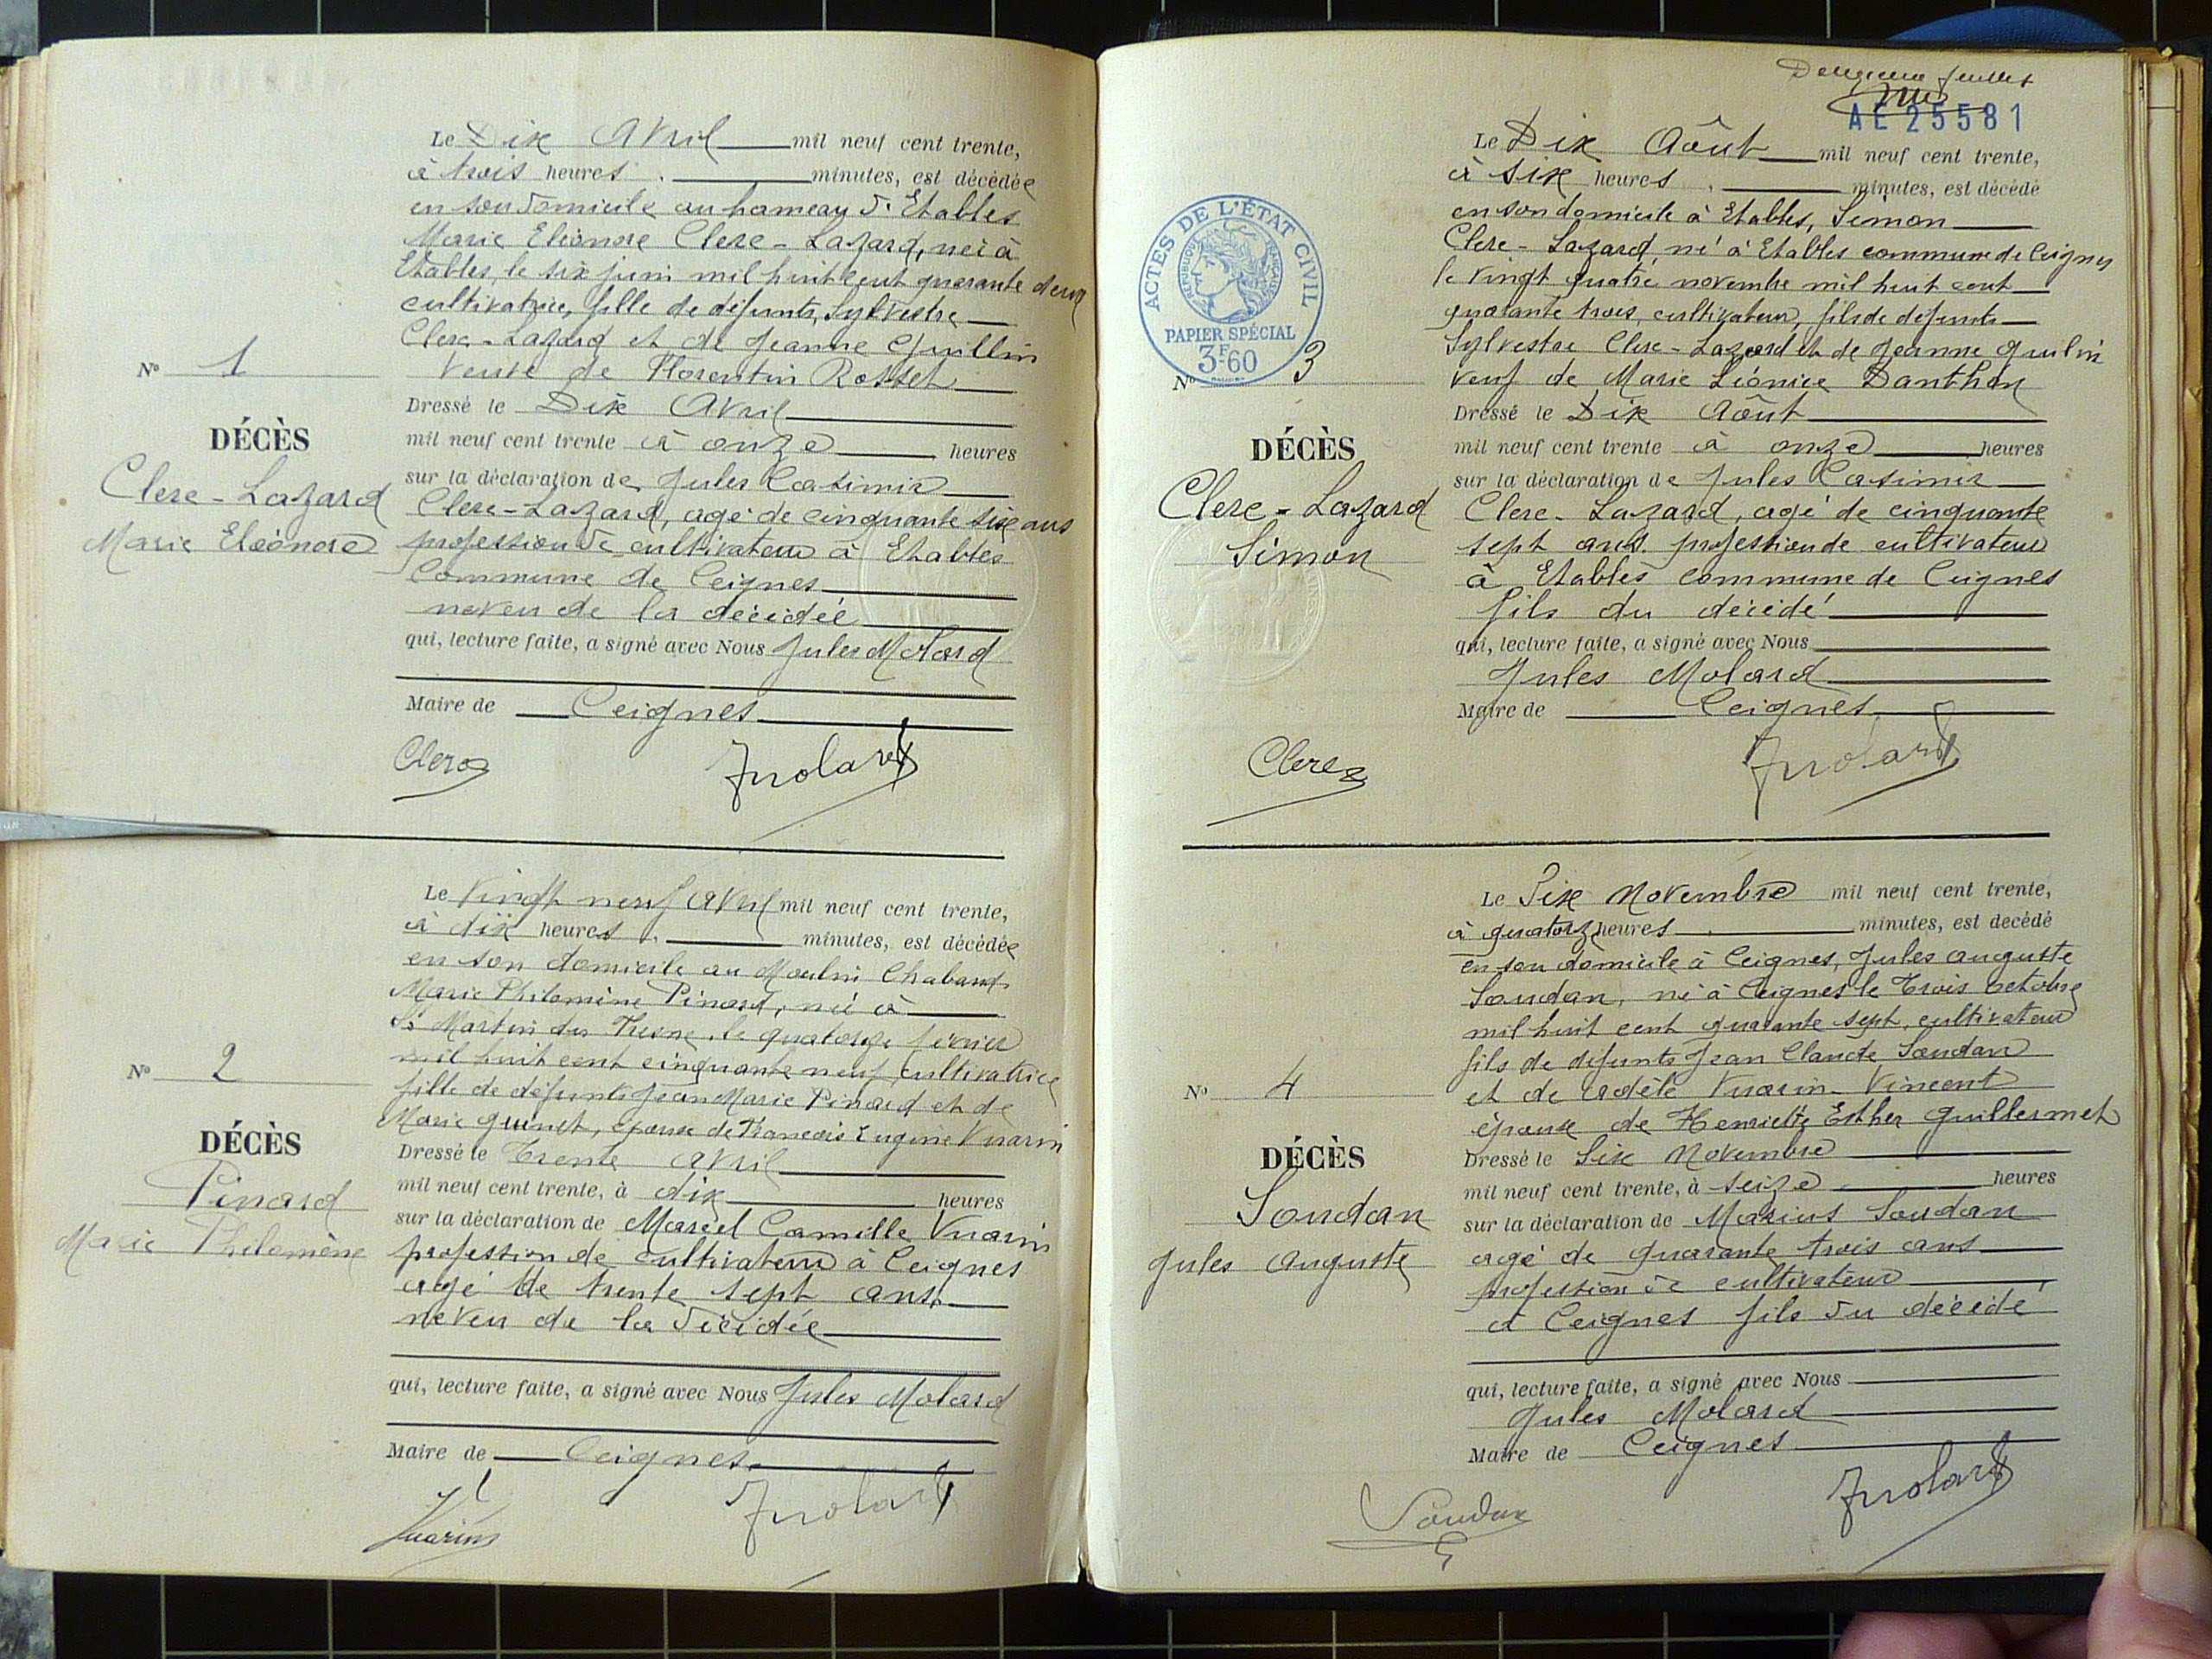 Le Dix Avril mil neuf cent trente,
à trois heures . minutes, est décédée
en son domicile au hameau d'Etables
Marie Eléonore Clerc-Lazard, née à
Etables, le six juin mil huit cent quarante deux
cultivatrice, fille de défunts, Sylvestre
Clerc-Lazard et de Jeanne Guillin
Veuve de Florentin Rosset
Nº 1
DÉCÈS
Clerc-Lazard
Marie Eléonore
Dressé le Dix Avril
mil neuf cent trente à onze heures
sur la déclaration de Jules Casimir
Clerc-Lazard, agé de cinquante six ans
profession de cultivateur à Etables
Commune de Ceignes
neveu de la décédée
qui, lecture faite, a signé avec Nous Jules Molard
Maire de Ceignes
Clerc JMolard
Le Vingt neuf Avril mil neuf cent trente,
à dix heures . minutes, est décédée
en son domicile au Moulin Chabaud
Marie Philomène Pinard, née à
St Martin du Fresne, le quatorze février
mil huit cent cinquante neuf, cultivatrice
fille de défunts Jean Marie Pinard et de
Marie Guinet, épouse de François Eugène Vuarin
Nº 2
DÉCÈS
Pinard
Marie Philomène
Dressé le Trente Avril
mil neuf cent trente, à dix heures
sur la déclaration de Marcel Camille Vuarin
profession de cultivateur à Ceignes
agé de trente sept ans,
neveu de la décédée
qui, lecture faite, a signé avec Nous Jules Molard
Maire de Ceignes
Vuarin JMolard
Deuxième feuillet
AE 25581
Le Dix Août mil neuf cent trente,
à six heures . minutes, est décédé
en son domicile à Etables, Simon
Clerc-Lazard né à Etables commune de Ceignes
le vingt quatre novembre mil huit cent
quarante trois, cultivateur, fils de défunts
Sylvestre Clerc-Lazard et de Jeanne Guilin
veuf de Marie Léonice Danthon
ACTES DE L'ÉTAT CIVIL
RÉPUBLIQUE FRANÇAISE
PAPIER SPÉCIAL
3F60
Nº 3
DÉCÈS
Clerc-Lazard
Simon
Dressé le Dix Août
mil neuf cent trente à onze heures
sur la déclaration de Jules Casimir
Clerc-Lazard, agé de cinquante
sept ans. profession de cultivateur
à Etables commune de Ceignes
fils du décédé
qui, lecture faite, a signé avec Nous
Jules Molard
Maire de Ceignes
Clerc JMolard
Le Six Novembre mil neuf cent trente,
à quatorze heures . minutes, est décédé
en son domicile à Ceignes, Jules Auguste
Soudan, né à Ceignes le Trois octobre
mil huit cent quarante sept, cultivateur
fils de défunts Jean Claude Soudan
et de Adèle Vuarin-Vincent
épouse de Henriette Esther Guillermet
Nº 4
DÉCÈS
Soudan
Jules Auguste
Dressé le Six Novembre
mil neuf cent trente, à seize heures
sur la déclaration de Marius Soudan
agé de quarante trois ans
profession de cultivateur
à Ceignes fils du décédé
qui, lecture faite, a signé avec Nous
Jules Molard
Maire de Ceignes
Soudan JMolard